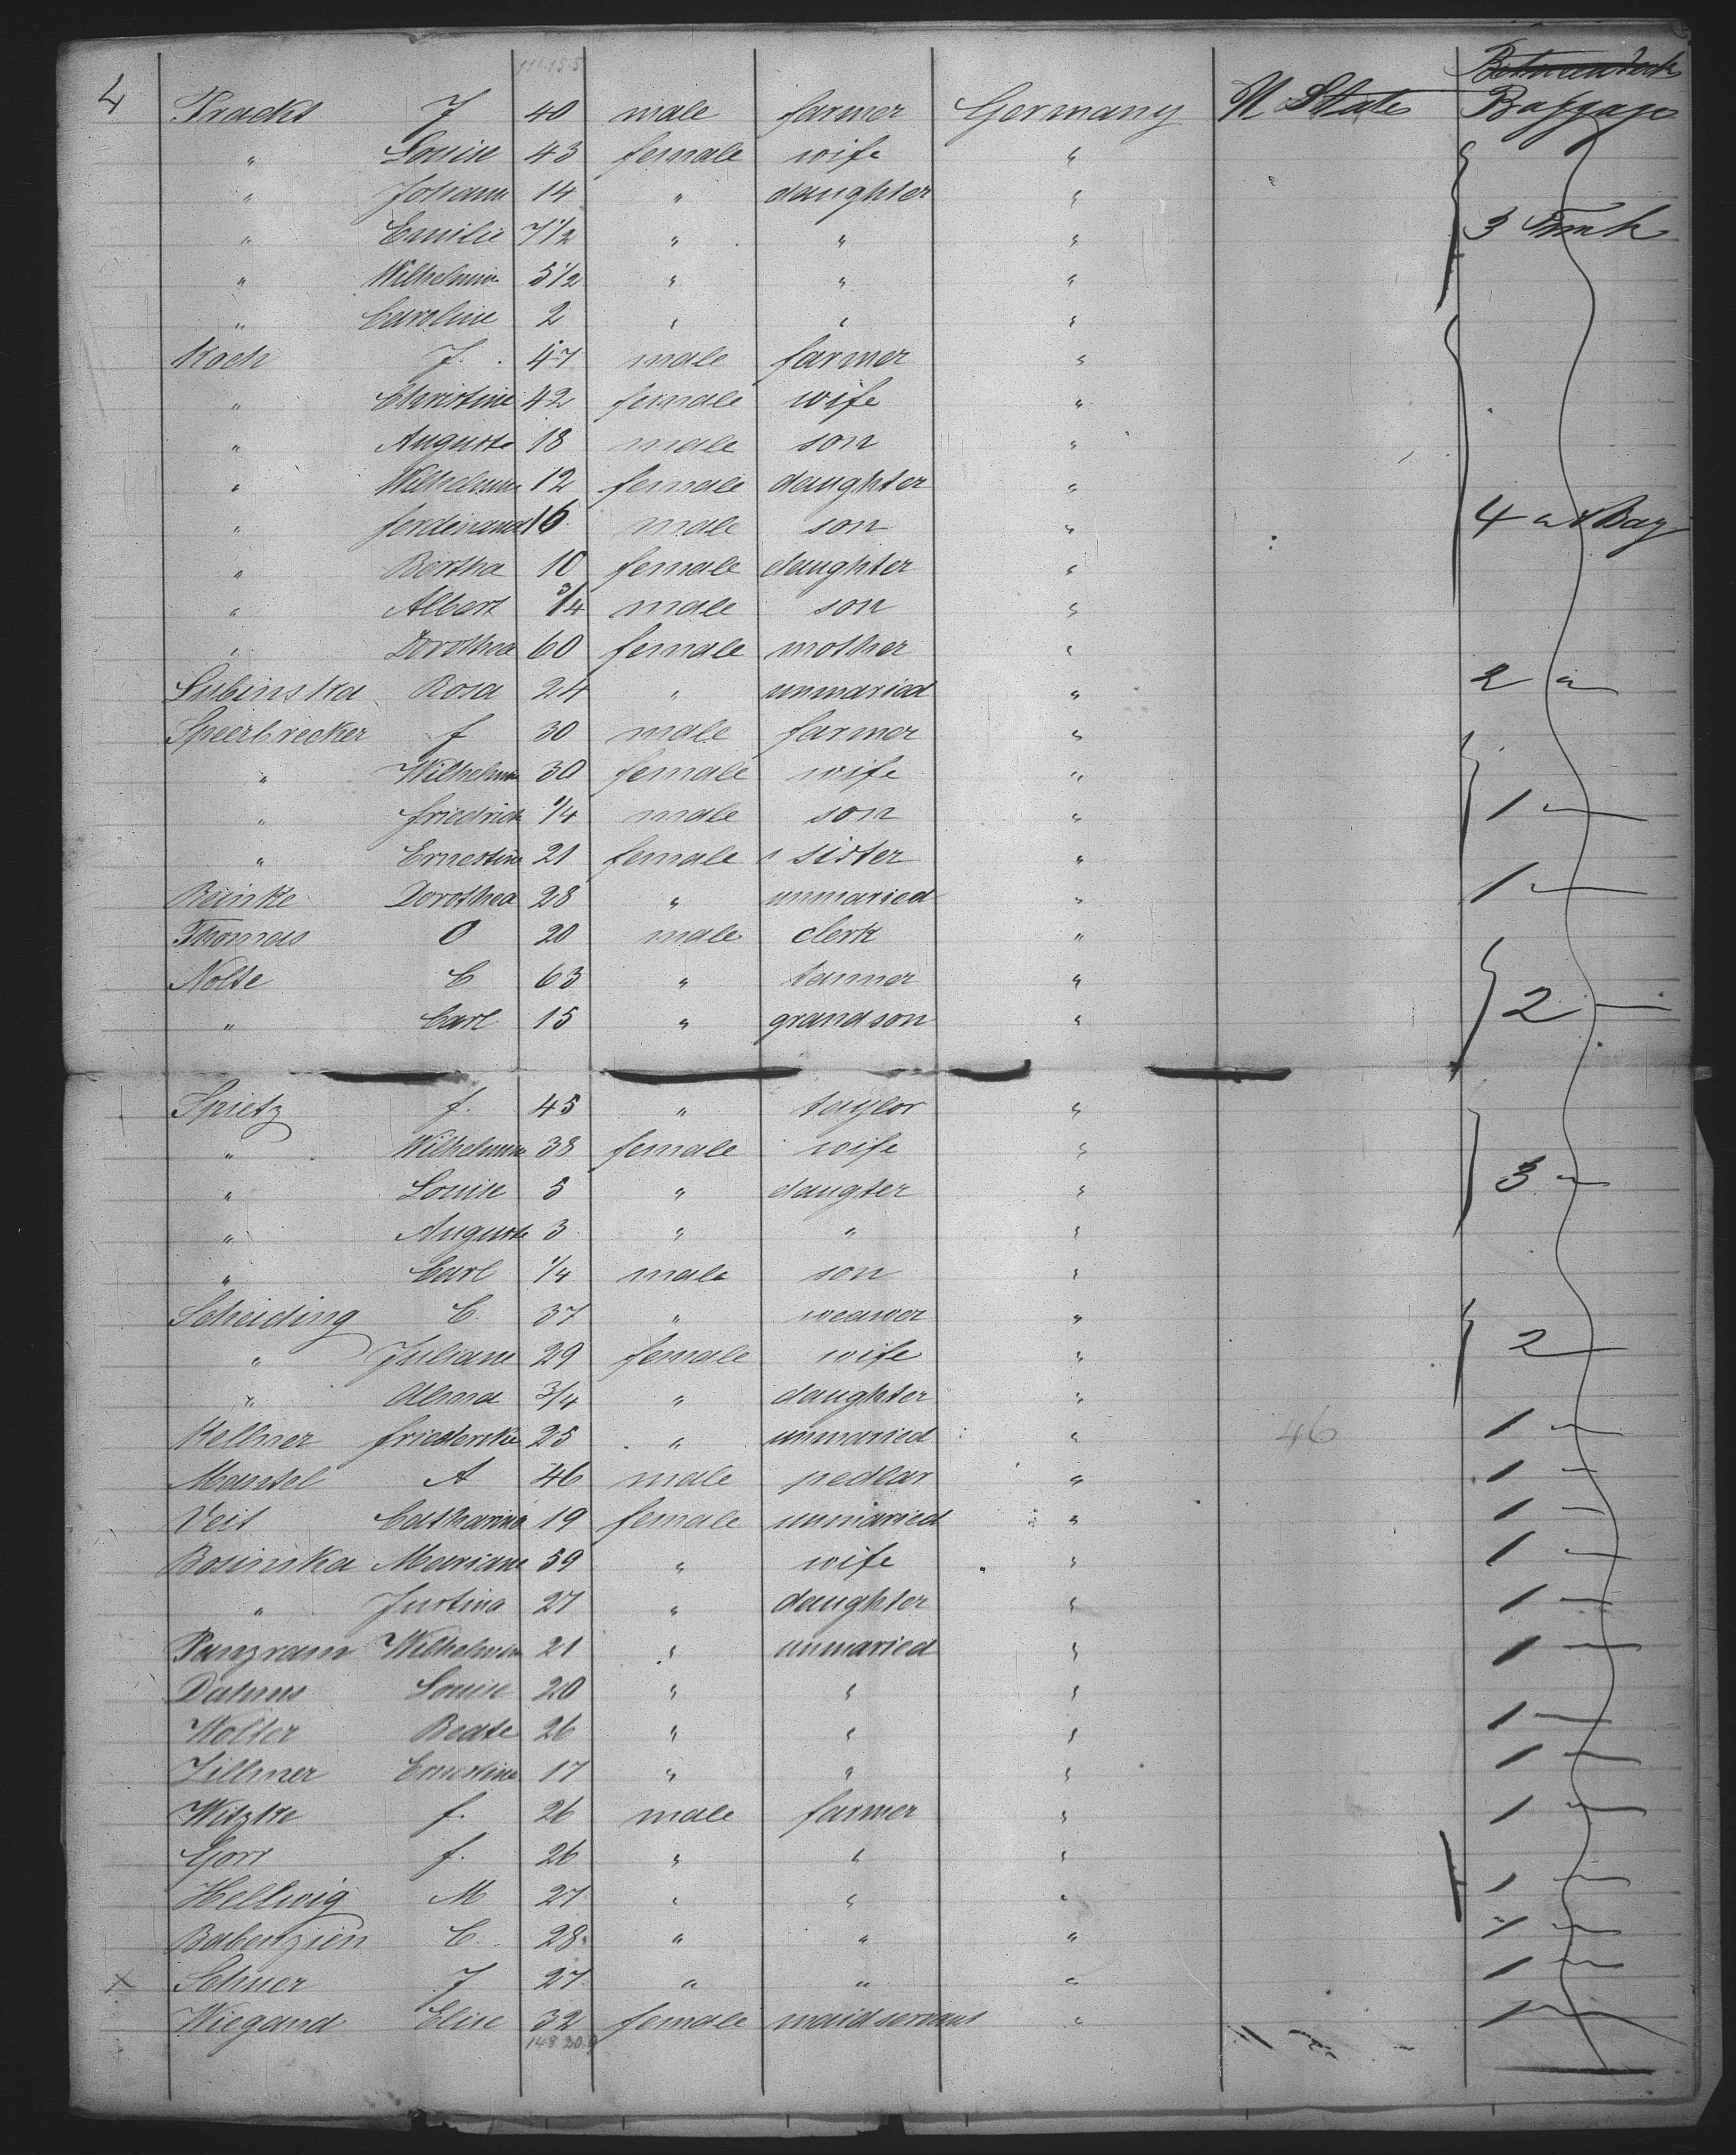 4 111.15.5 Between deck
Pracks J 40 male farmer Germany U State Baggage
" Louise 43 female wife "
" Johann 14 " daughter "
" Emilie 7 1/2 " " " 3 Trunk
" Wilhelmin 5 1/2 " " "
" Caroline 2 " " "
Koch J. 47 male farmer "
" Christine 42 female wife "
" Auguste 18 male son "
" Wilhelmine 12 female daughter "
" ferdinand 16 male son " 4 " & Bag
" Bertha 10 female daughter "
" Albert 3/4 male son "
" Dorothea 60 female mother "
Lubinska Rosa 24 " unmaried " 2 "
Speerbrecker f 30 male farmer "
" Wilhelmin 30 female wife "
" friedrich 1/4 male son " 1 "
" Ernestine 21 female sister "
Reinke Dorothea 28 " unmaried " 1 "
Thomas O 20 male clerk "
Nolte C 63 " tanner "
" Carl 15 " grandson " 2 "
Spietz f. 45 " taylor "
" Wilhelmine 38 female wife "
" Louise 5 " daugter " 3 "
" Auguste 3 " " "
" Carl 1/4 male son "
Scheiding C. 37 " weawer "
" Juliane 29 female wife " 2 "
" Alma 3/4 " daughter "
Kellner friedericke 25 " unmaried " 46 1 "
Mantel A 46 male pedlar " 1 "
Veit Catharina 19 female unmaried " 1 "
Bosinska Mariane 59 " wife " 1 "
" Justina 27 " daughter " 1 "
Panzram Wilhelmin 21 " unmaried " 1 "
Dahms Louise 20 " " "
Wolter Beate 26 " " " 1 "
Zillmer Ernestine 17 " " " 1 "
Witzke f. 26 male farmer " 1 "
Gorr f. 26 " " "
Hellwig M 27 " " " 1 "
Babenzien C. 28 " " " 1 "
x Schuer J 27 " " " 1 "
Wiegand Elise 32 female maidservant " 1 "
148 20.9